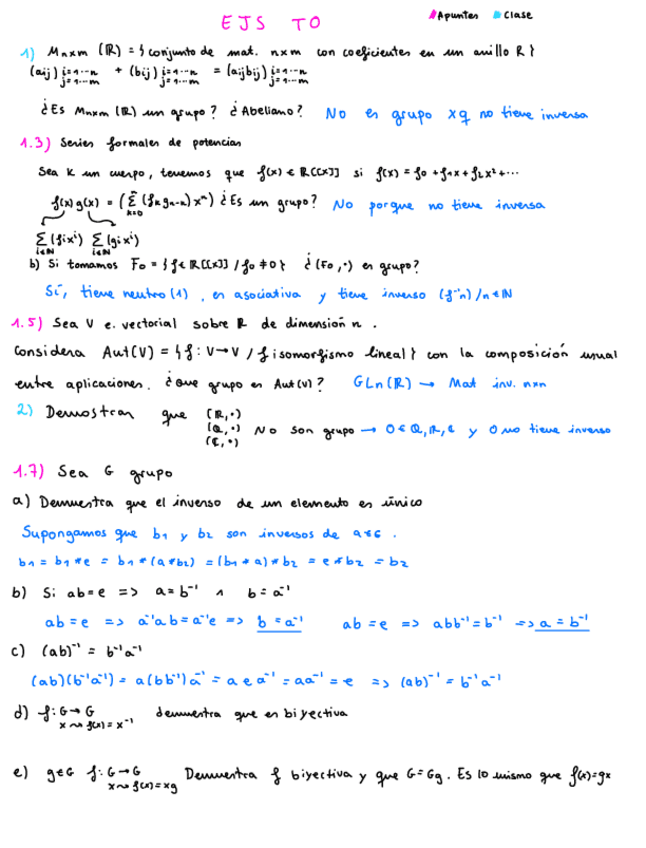 EJS TO
Apuntes Clase
1) Mnxm (R) = { conjunto de mat. nxm con coeficientes en un anillo R }
(aij) i=1...n j=1...m + (bij) i=1...n j=1...m = (aijbij) i=1...n j=1...m
¿Es Mnxm (R) un grupo? ¿Abeliano? No es grupo xq no tiene inversa
1.3) Series formales de potencias
Sea K un cuerpo, tenemos que f(x) ∈ R[[x]] si f(x) = f0 + f1x + f2x² + ...
f(x)g(x) = (Σ k=0 n (fk gn-k) xⁿ) ¿Es un grupo? No porque no tiene inversa
Σ i∈N (fi xⁱ) Σ i∈N (gi xⁱ)
b) Si tomamos F0 = { f ∈ R[[x]] / f0 ≠ 0 } ¿(F0, ·) es grupo?
Sí, tiene neutro (1), es asociativa y tiene inverso (f⁻¹n) / n ∈ N
1.5) Sea V e. vectorial sobre R de dimensión n.
Considera Aut(V) = { f: V→V / f isomorfismo lineal } con la composición usual
entre aplicaciones. ¿Que grupo es Aut(V)? GLn(R) → Mat inv. nxn
2) Demostrar que (R, ·) (Q, ·) (C, ·) No son grupo → 0 ∈ Q, R, C y 0 no tiene inverso
1.7) Sea G grupo
a) Demuestra que el inverso de un elemento es único
Supongamos que b1 y b2 son inversos de a ∈ G.
b1 = b1 * e = b1 * (a * b2) = (b1 * a) * b2 = e * b2 = b2
b) Si ab = e => a = b⁻¹ ∧ b = a⁻¹
ab = e => a⁻¹ab = a⁻¹e => b = a⁻¹ ab = e => abb⁻¹ = b⁻¹ => a = b⁻¹
c) (ab)⁻¹ = b⁻¹a⁻¹
(ab)(b⁻¹a⁻¹) = a(bb⁻¹)a⁻¹ = a e a⁻¹ = aa⁻¹ = e => (ab)⁻¹ = b⁻¹a⁻¹
d) f: G → G demuestra que es biyectiva
x ⇝ f(x) = x⁻¹
e) g∈G f: G → G Demuestra f biyectiva y que G = Gg. Es lo mismo que f(x) = gx
x ⇝ f(x) = xg